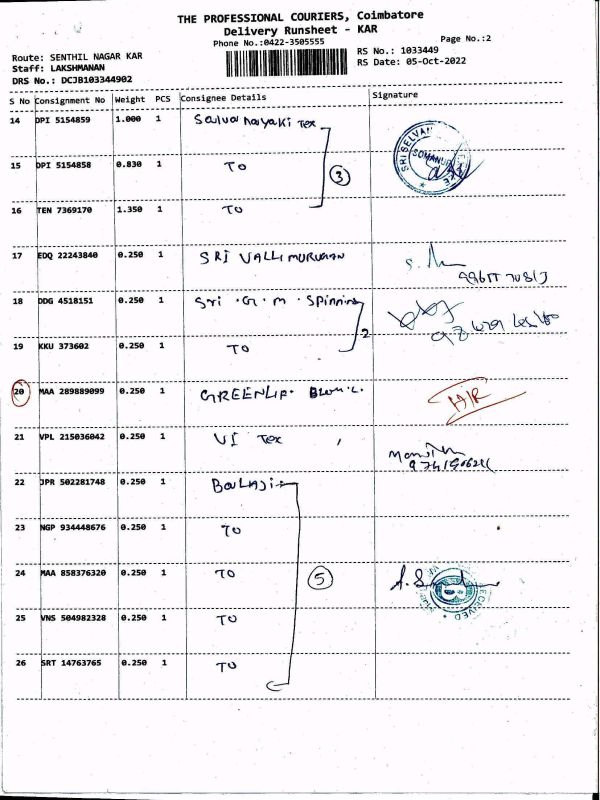 THE PROFESSIONAL COURIERS, Coimbatore
Delivery Runsheet - KAR
Phone No.:0422-3505555
Page No.:2
Route: SENTHIL NAGAR KAR
Staff: LAKSHMANAN
DRS No.: DCJB103344902
RS No.: 1033449
RS Date: 05-Oct-2022
S No Consignment No Weight PCS Consignee Details Signature
14 DPI 5154859 1.000 1 Tex
15 DPI 5154858 0.830 1 TO
3
16 TEN 7369170 1.350 1 TO
17 EDQ 22243840 0.250 1 SRI VALLI MURUGAN
18 DDG 4518151 0.250 1 Sri . G . M . Spinning
2
19 KKU 373602 0.250 1 TO
20 MAA 289889099 0.250 1
21 VPL 215036042 0.250 1 VI Tex
22 JPR 502281748 0.250 1 BaLAJi
23 NGP 934448676 0.250 1 TO
24 MAA 858376320 0.250 1 TO
5
25 VNS 504982328 0.250 1 TO
26 SRT 14763765 0.250 1 TO